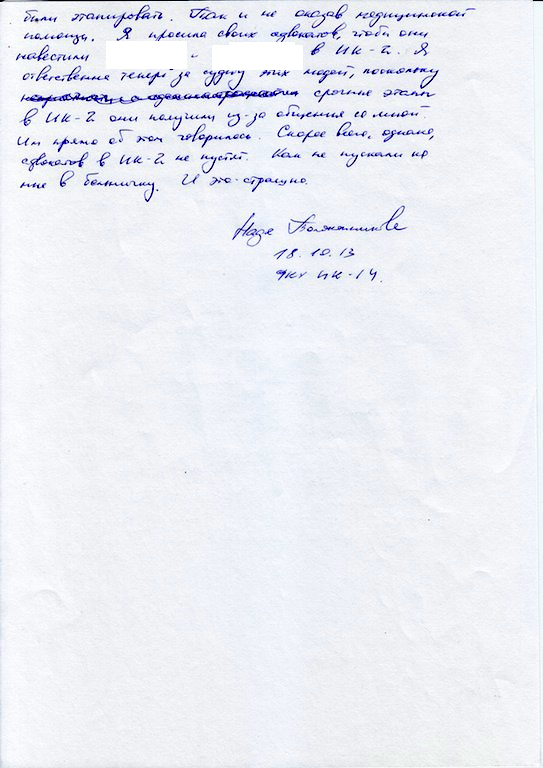 были этапировать. Так и не оказав медицинской
помощи. Я просила своих адвокатов, чтобы они
навестили и в ИК-2. Я
ответственна теперь за судьбу этих людей, поскольку
срочные этапы
в ИК-2 они получили из-за общения со мной.
Им прямо об этом говорилось. Скорее всего, однако,
адвокатов в ИК-2 не пустят. Как не пускали ко
мне в больничку. И это-страшно.
Надя Толоконникова
18.10.13
ФКУ ИК-14.